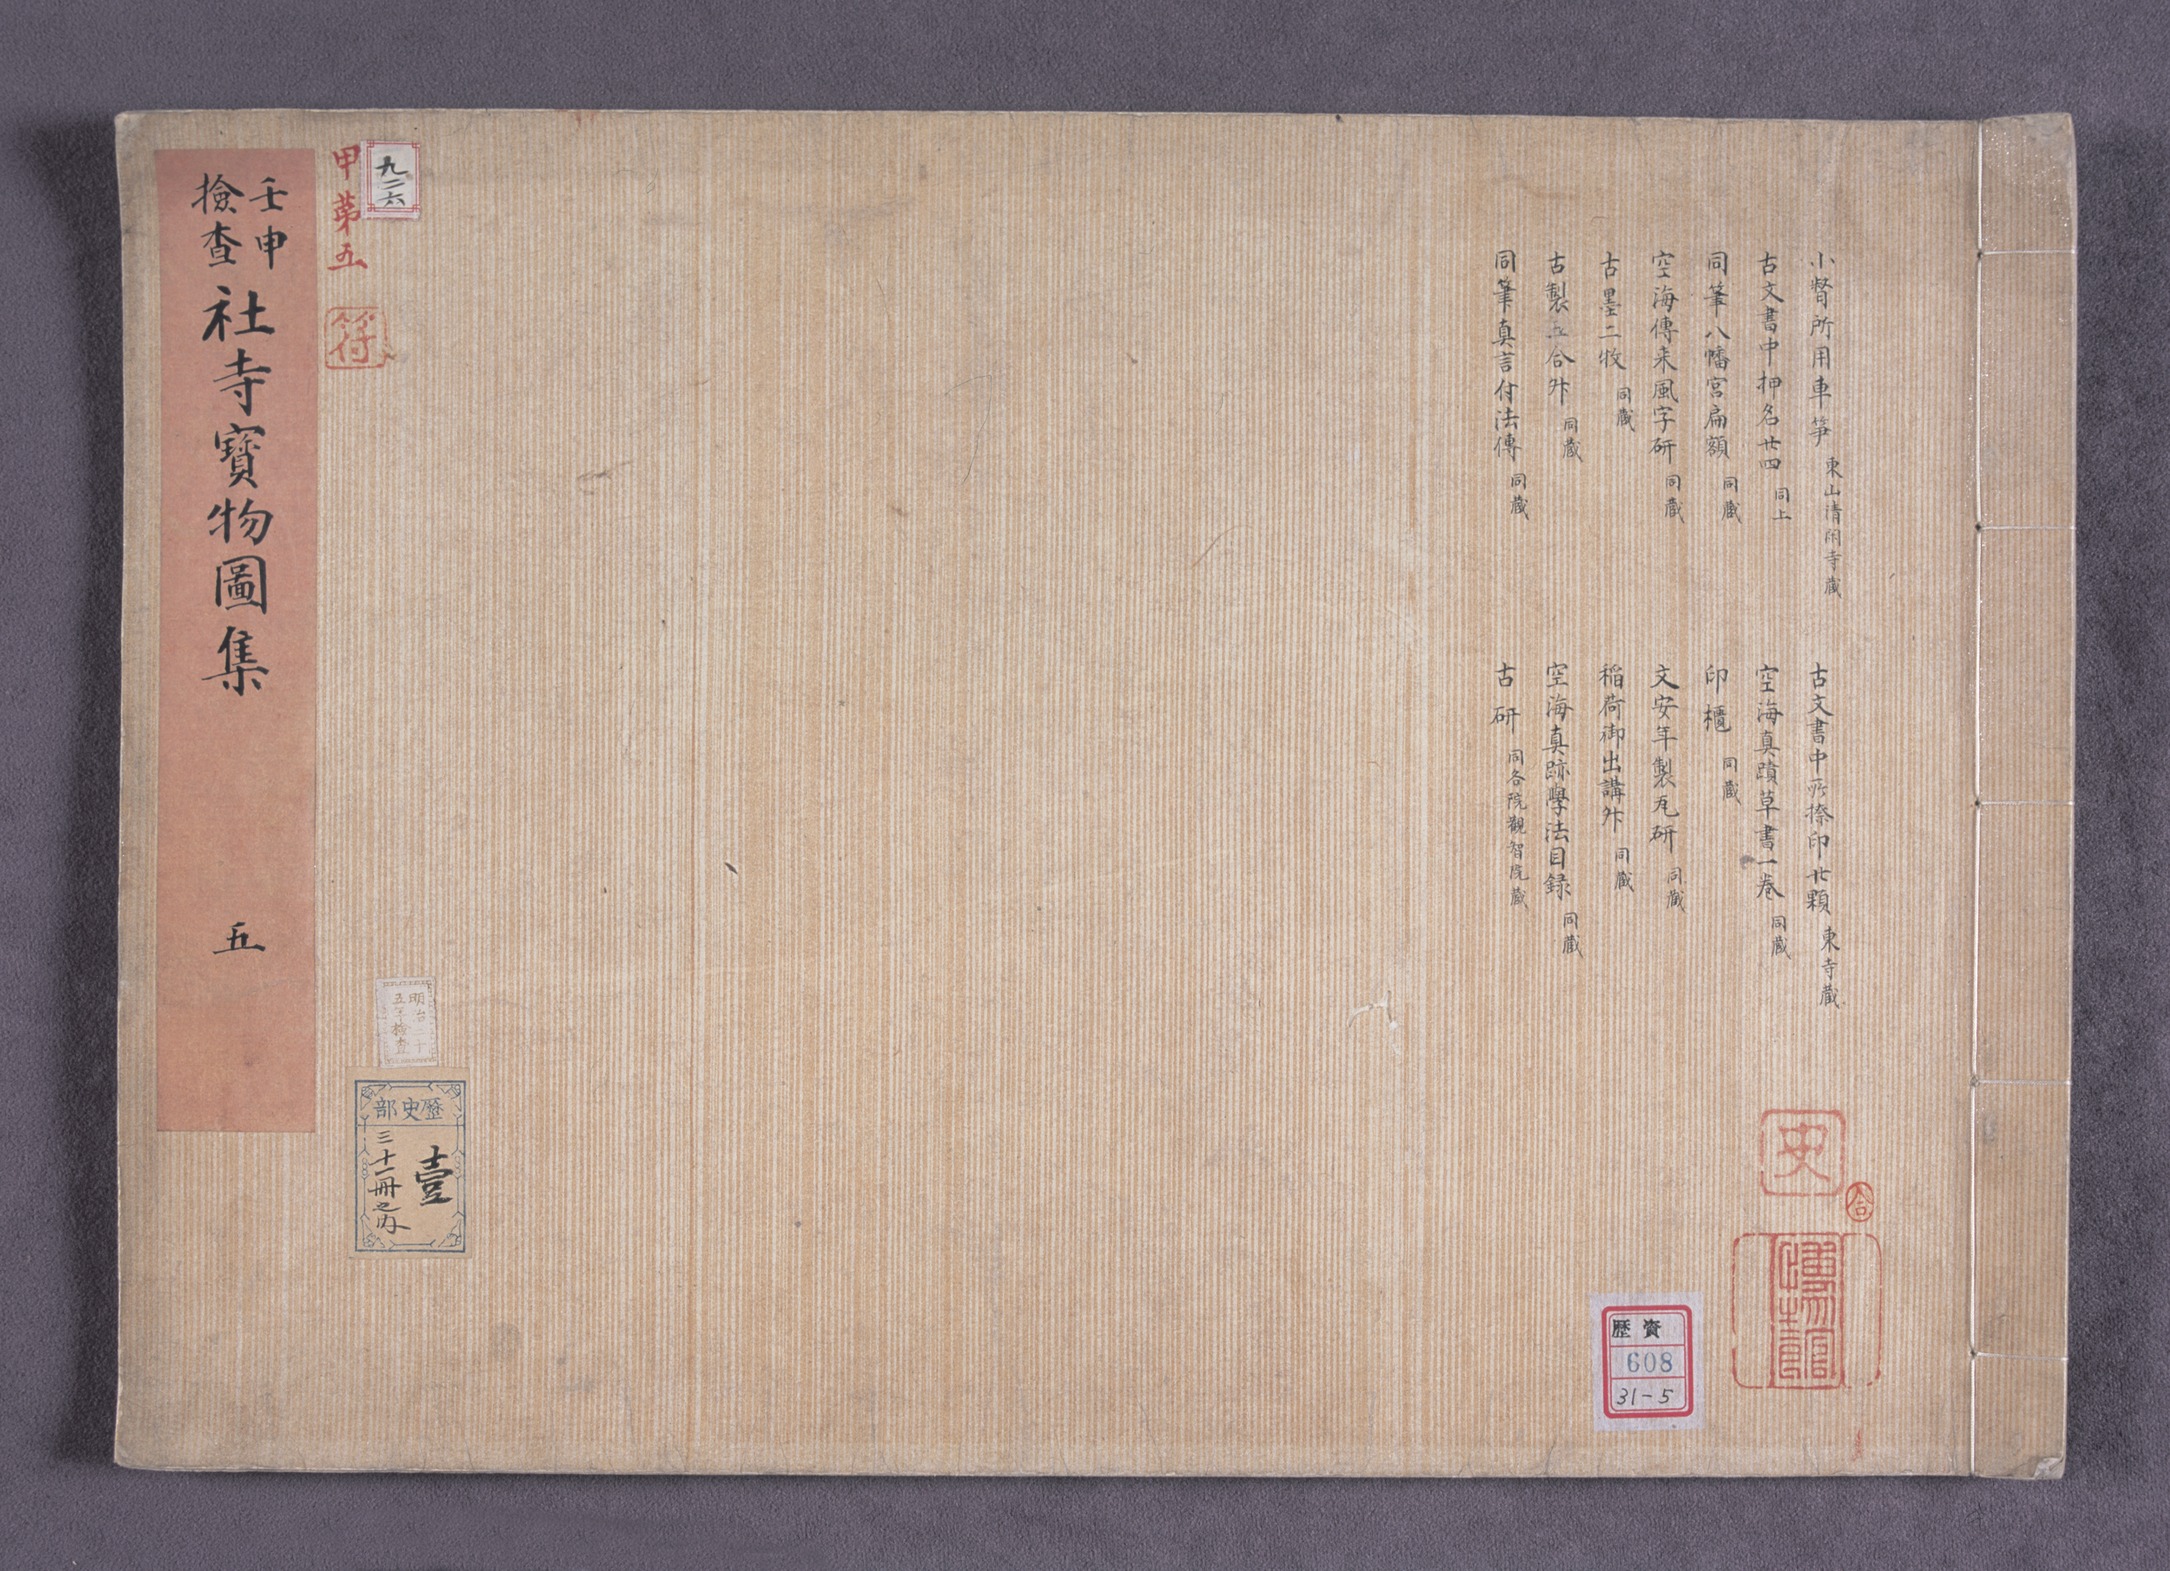 小督所用車箏 東山清閑寺蔵
古文書中押名廿四 同上
同筆八幡宮扁額 同蔵
空海傳来風字研 同蔵
古墨二枚 同蔵
古製五合舛 同蔵
同筆真言付法傳 同蔵
古文書中所捺印廿顆 東寺蔵
空海真蹟草書一巻 同蔵
印櫃 同蔵
文安年製瓦研 同蔵
稲荷御出講舛 同蔵
空海真跡學法目録 同蔵
古研 同各院觀智院蔵
史
合
博物館
資歴
608
31-5
九二六
甲第五
符
明治三十
五年検査
歴史部
壹
三十一冊之内
壬申
撿査
社寺寶物圖集 五